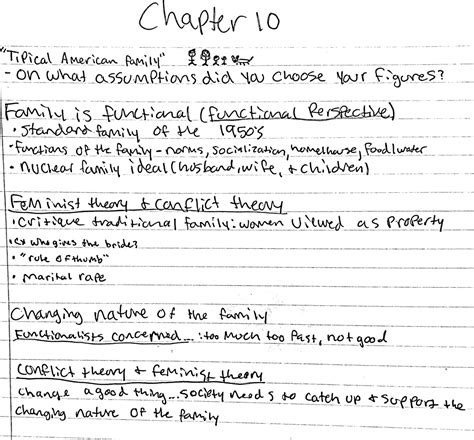 Chapter 10
"Tipical American Family"
- on what assumptions did you choose your figures?
Family is functional (functional Perspective)
• Standard family of the 1950's
- functions of the family - norms, socialization, home/house, food/water
- nuclear family ideal (husband, wife, & children)
Feminist theory & conflict theory
• critique traditional family: women viewed as property
• ex who gives the bride?
• "rule of thumb"
• marital rape
Changing nature of the family
Functionalists concerned...: too much too fast, not good
conflict theory & feminist theory
change a good thing... society needs to catch up & support the
changing nature of the family